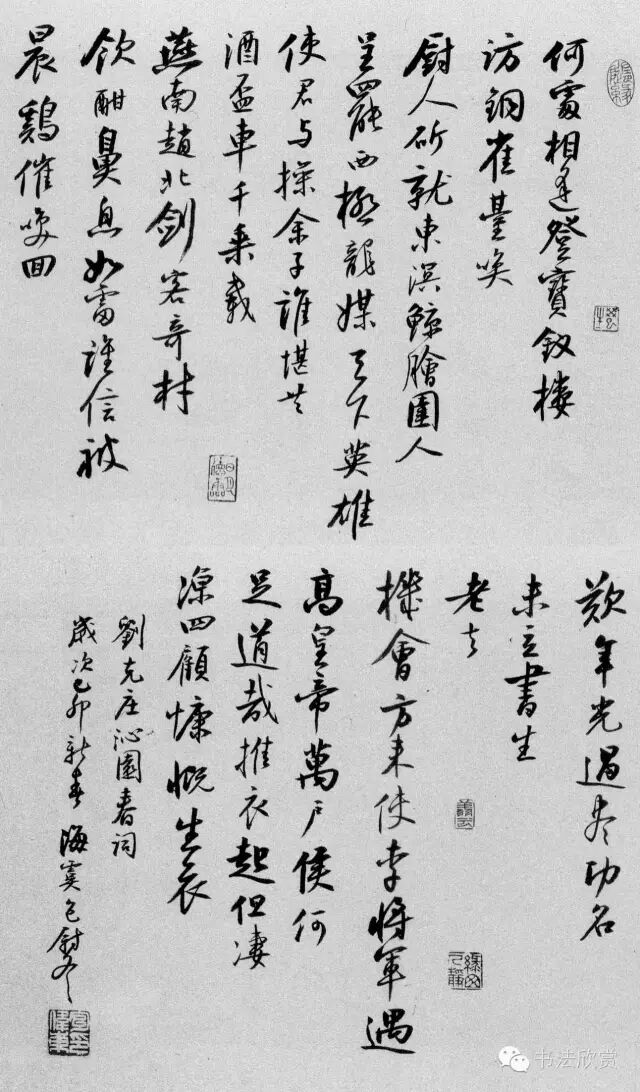 何處相逢登寶釵樓
訪銅雀臺喚
厨人斫就東溟鯨膾圉人
呈罷西極龍媒天下英雄
使君与操余子誰堪共
酒盃車千乘載
燕南趙北劍客奇材
飲酣鼻息如雷誰信被
晨鷄催喚回
歎年光過盡功名
未立書生
老去
機會方來使李將軍遇
高皇帝萬户侯何
足道哉推衣起但凄
涼四顧慷慨生哀
劉克庄沁園春詞
歲次己卯新春海寞
书法欣赏